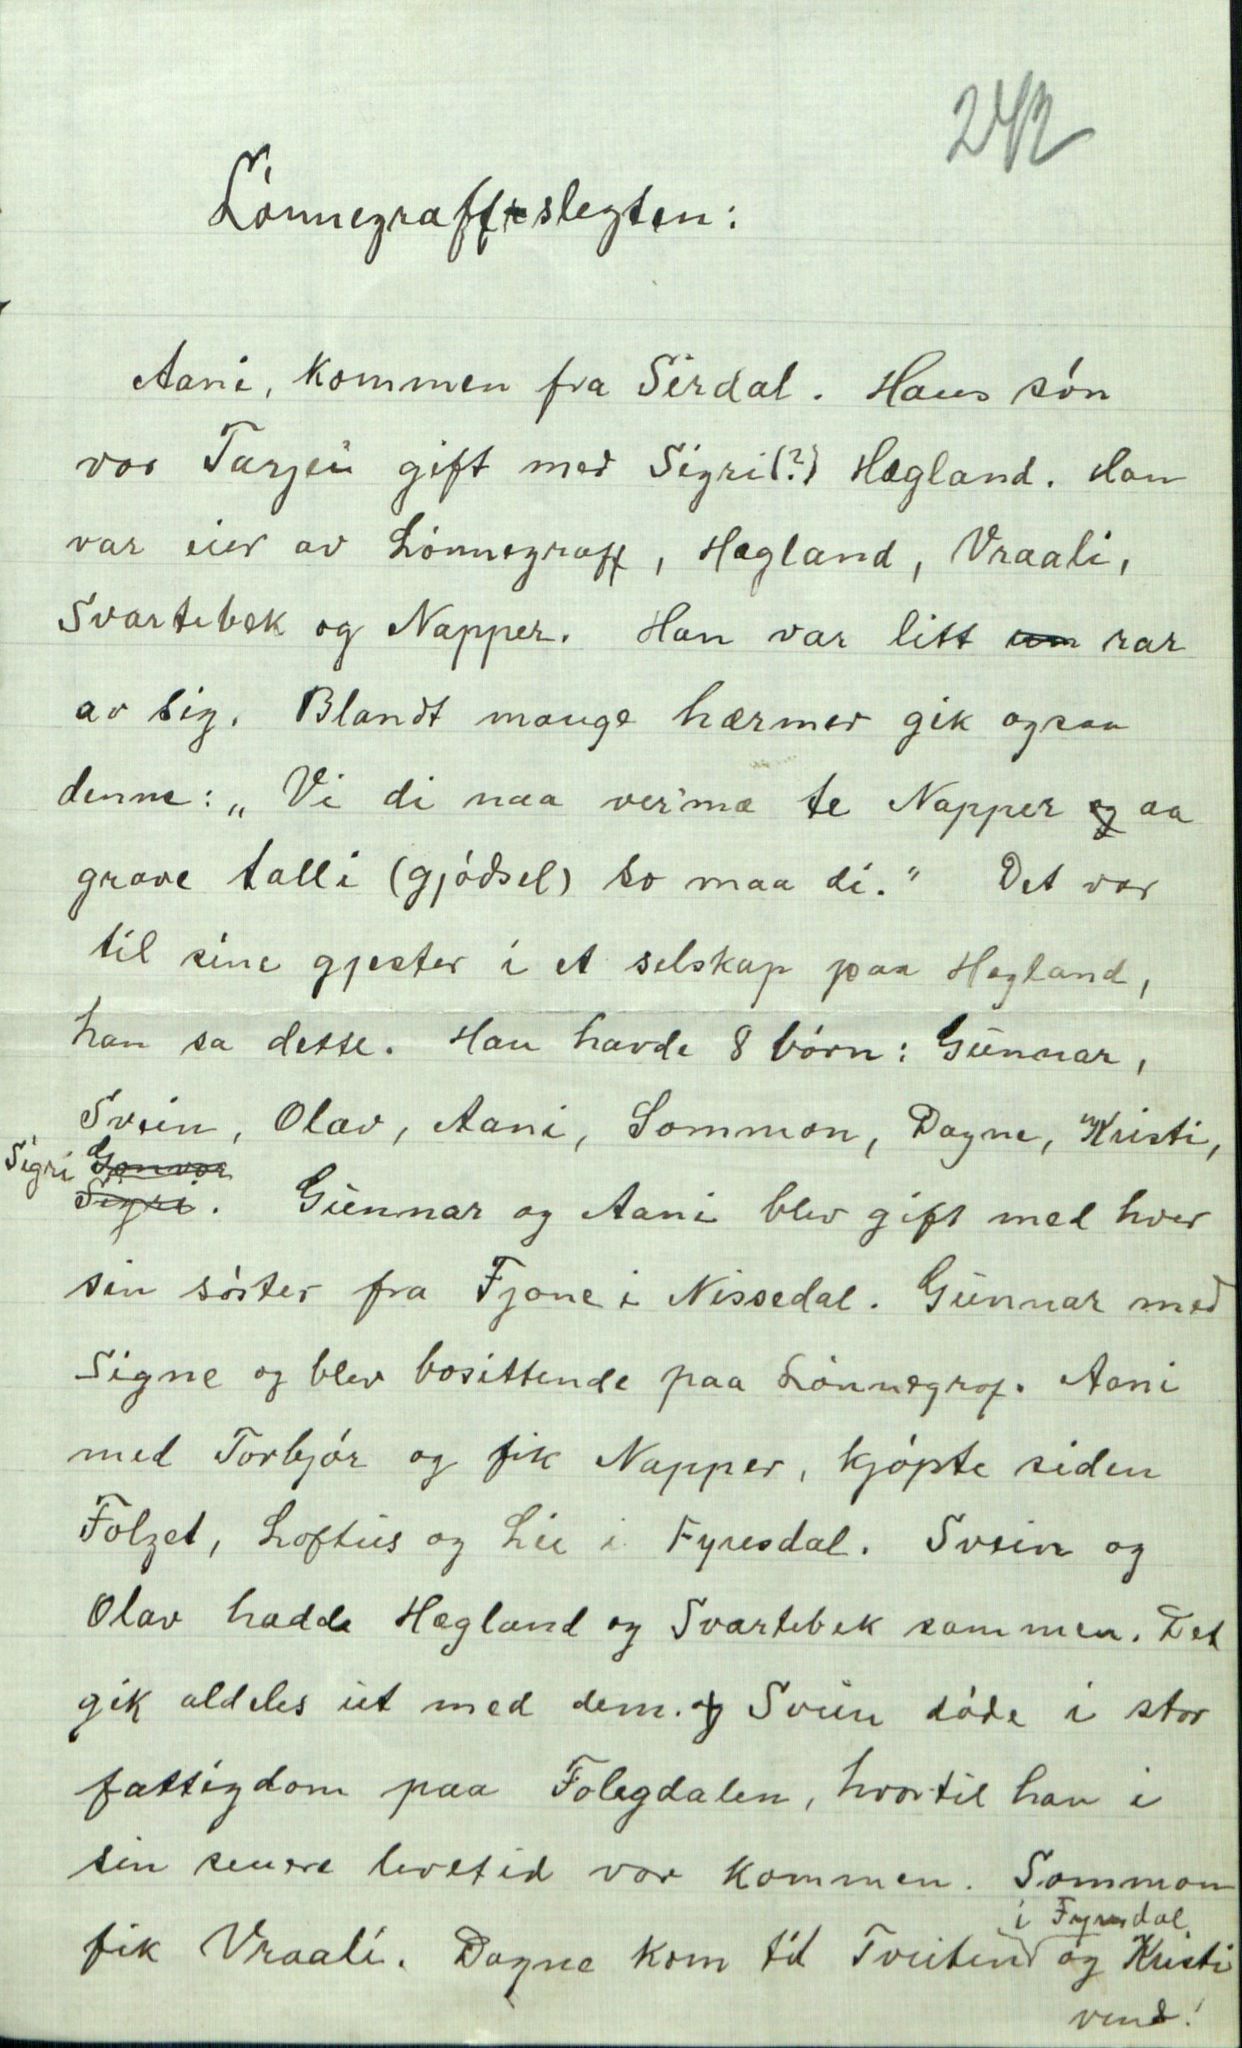 242
Lónnegraff-slegten:
Aani, kommen fra Sirdal. Hans són
var Tarjei gift med Sigri(?) Hægland. Han
var eier av Lónnegraff, Hægland, Vraali,
Svartebæk og Napper. Han var litt rar
av sig. Blandt mange hærmer gik ogsaa
denne: „Vi di naa ver'mæ te Napper aa
grave talli (gjódsel) so maa di." Det var
til sine gjester i et selskap paa Hægland,
han sa dette. Han havde 8 bórn: Gunnar,
Svein, Olav, Aani, Sommon, Dagne, Kristi,
Sigri Gonvor
Sigri. Gunnar og Aani blev gift med hver
sin sóster fra Fjone i Nissedal. Gunnar med
Signe og blev bosittende paa Lónnegraf. Aani
med Torbjór og fik Napper, kjópte siden
Folget, Loftus og Lie i Fyresdal. Svein og
Olav hadde Hægland og Svartebek sammen. Det
gik aldeles ut med dem. og Svein dóde i stor
fattigdom paa Folegdalen, hvortil han i
sin senere levetid var kommen. Sommon
i Fyresdal
fik Vraali. Dagne kom til Tveiten og Kristi
vend!